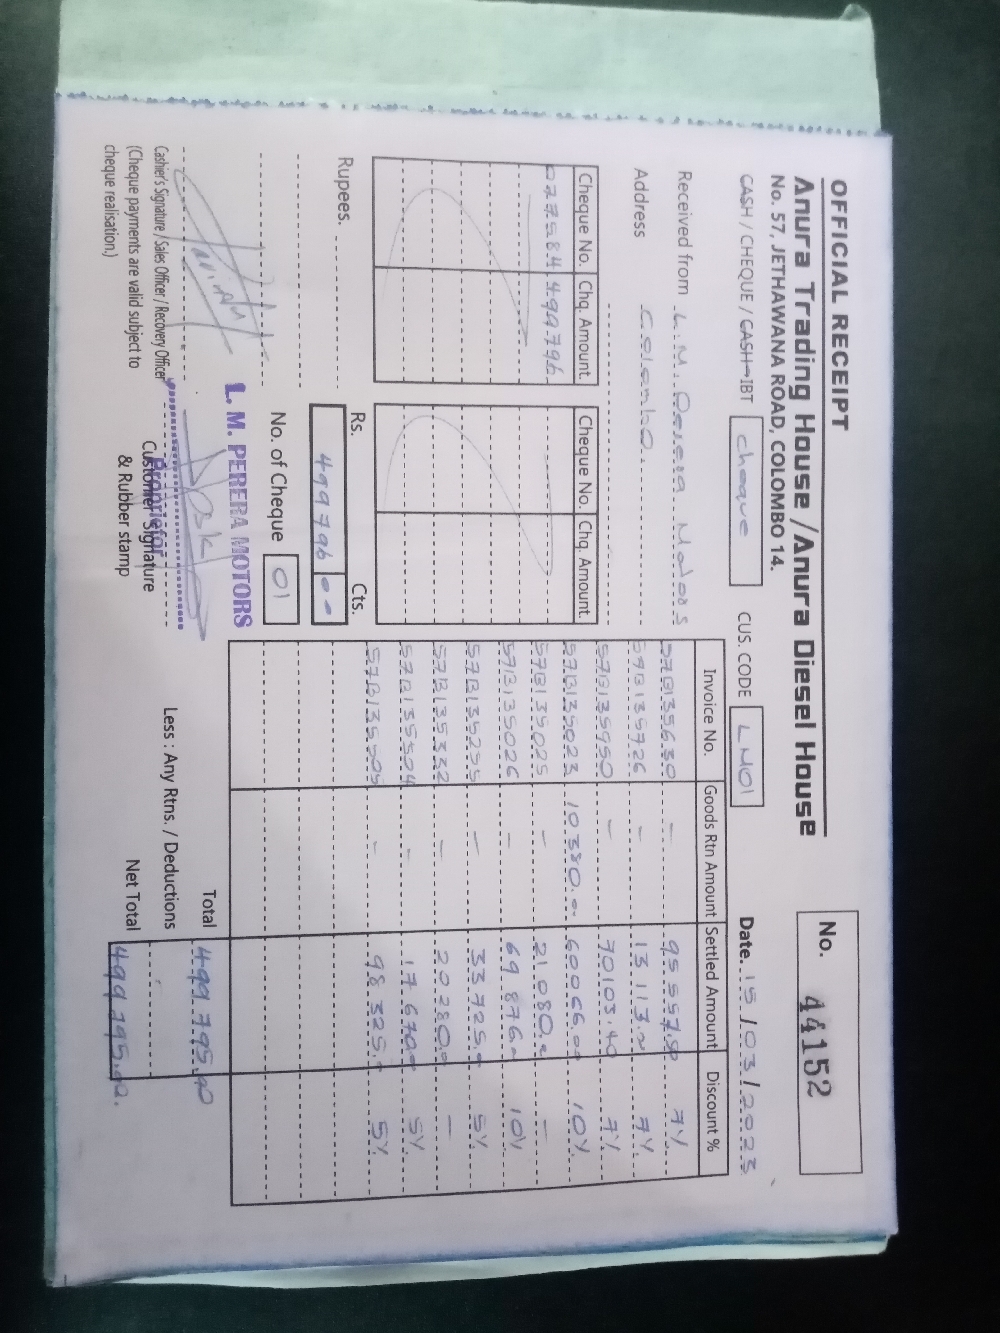 OFFICIAL RECEIPT
Anura Trading House / Anura Diesel House
No. 57, JETHAWANA ROAD, COLOMBO 14.
No. 44152
CASH / CHEQUE / CASH-IBT cheque CUS. CODE LM01 Date. 15/03/2023
Received from L.M. Perera Motors
Address Colombo
Cheque No. Chq. Amount. Cheque No. Chq. Amount.
499796
Rupees. Rs. Cts.
499796 00
No. of Cheque 01
L. M. PERERA MOTORS
Proprietor
Cashier's Signature / Sales Officer / Recovery Officer
(Cheque payments are valid subject to
cheque realisation.)
Customer Signature
& Rubber stamp
Invoice No. Goods Rtn Amount Settled Amount Discount %
57B135630 - 95557.50 7%
57B135726 - 13113.00 7%
57B135950 - 70103.40 7%
57B135023 10380.00 60066.00 10%
57B135025 - 21080.00 -
57B135026 - 69876.00 10%
57B135255 - 33725.00 5%
57B135332 - 20280.00 -
57B135504 - 17670.00 5%
57B135505 - 98325.00 5%
Total 499 795.90
Less : Any Rtns. / Deductions
Net Total 499 795.90